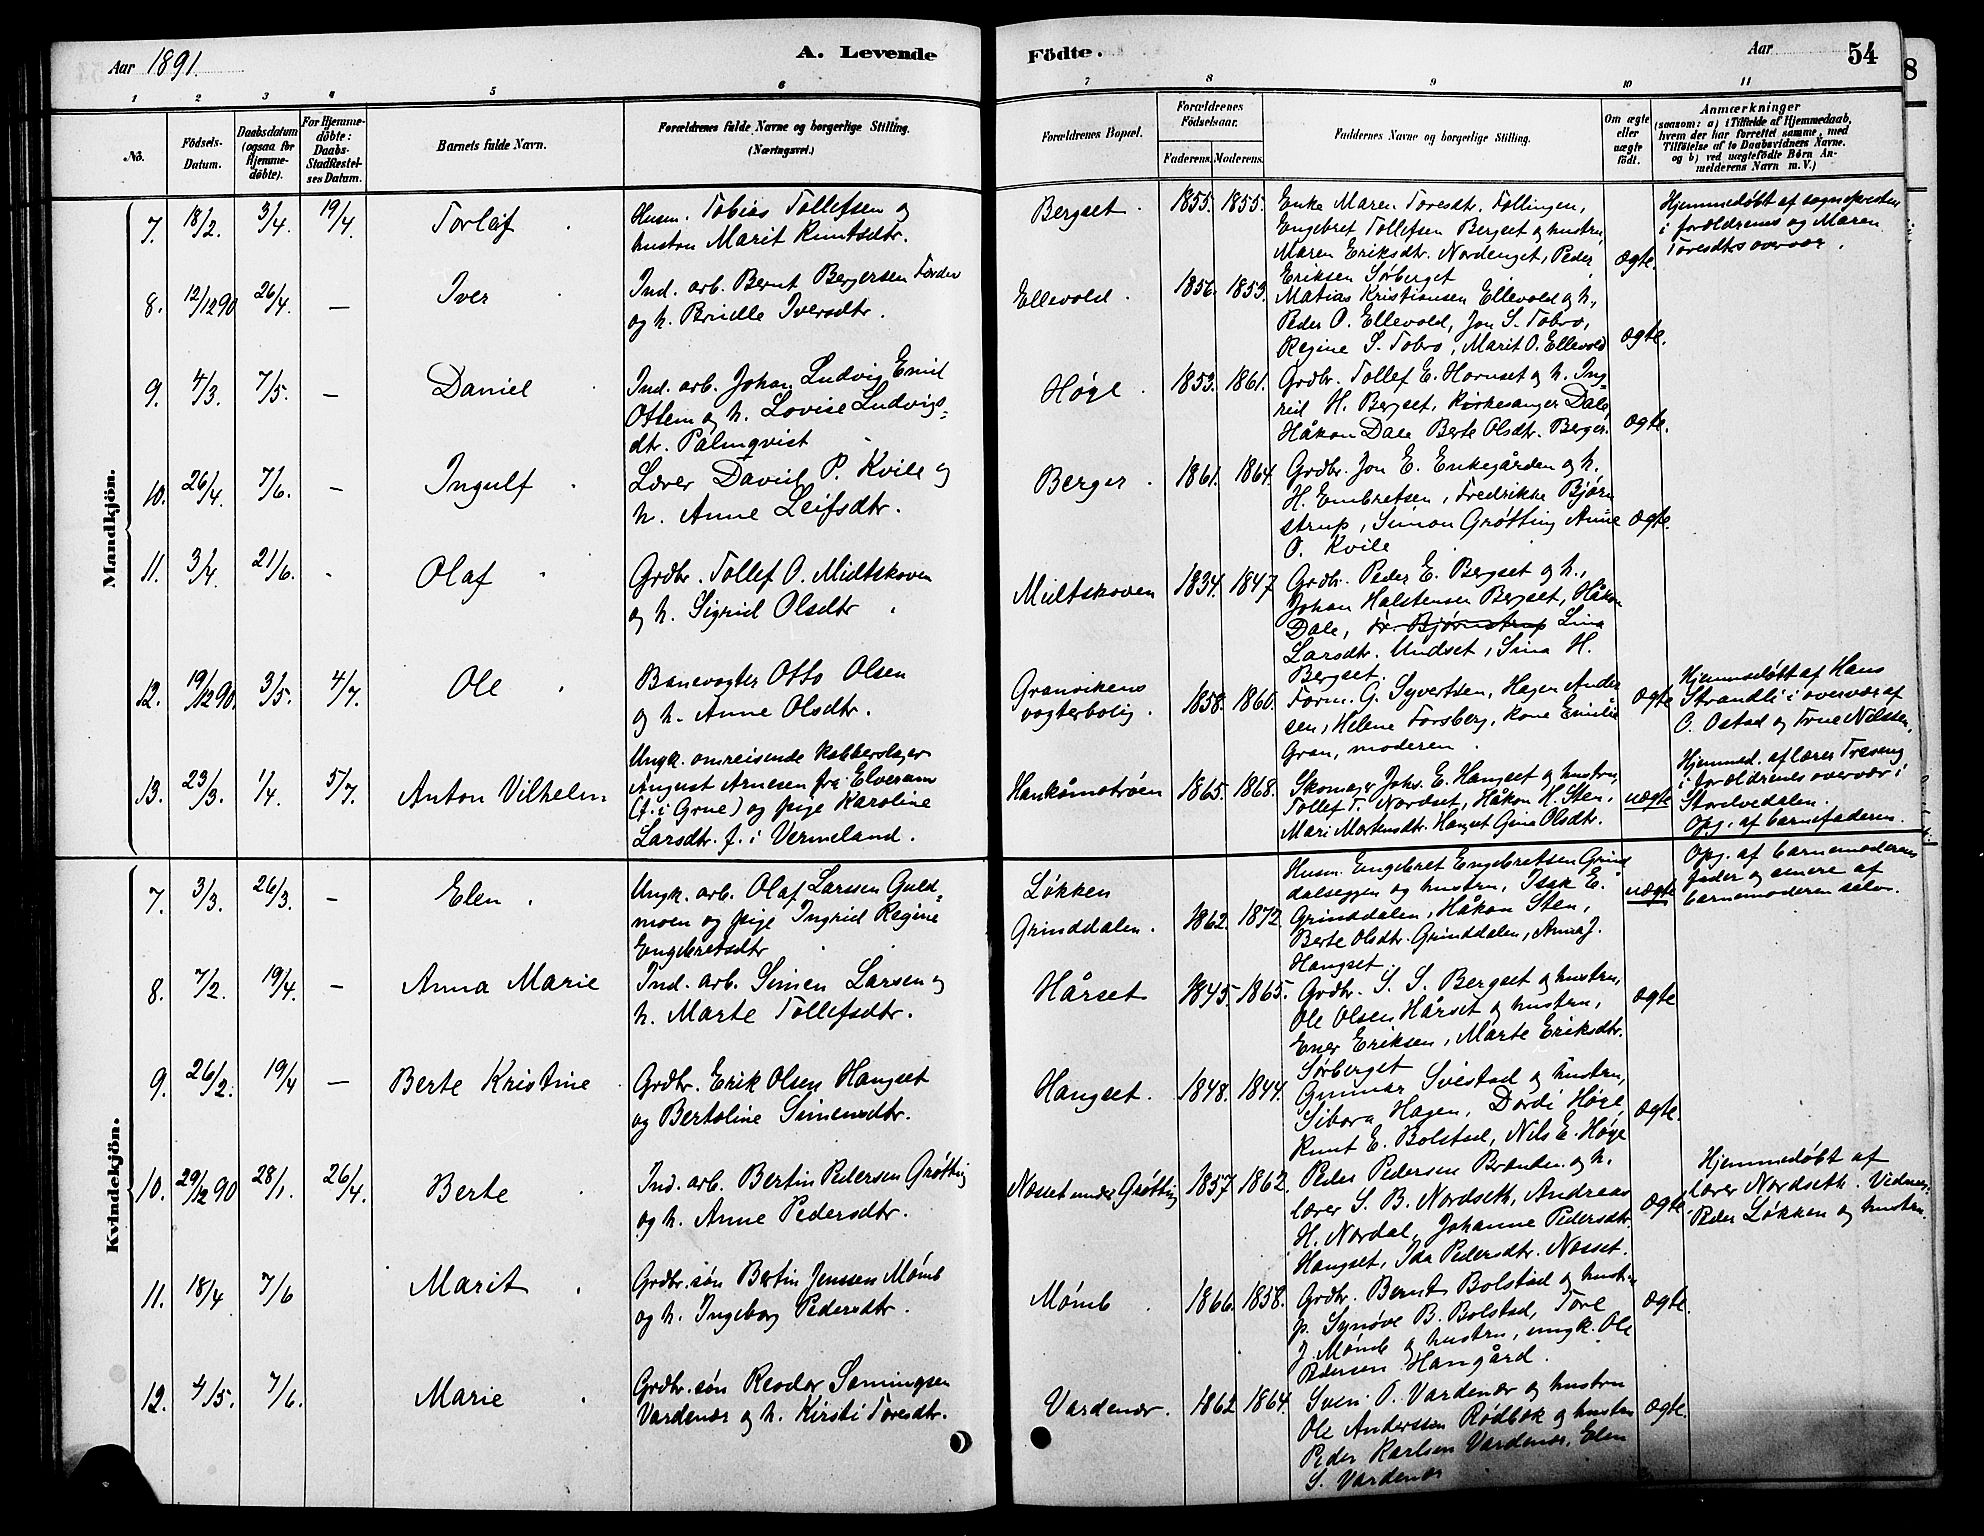 Aar 1891.
A. Levende
Födte.
Aar
54
8
1 2 3 4 5 6 7 8 9 10 11
No.
Födsels-Datum.
Daabsdatum (ogsaa for Hjemme-döbte).
For Hjemme-döbte: Daabs-Stadfæstel-ses Datum.
Barnets fulde Navn.
Forældrenes fulde Navne og borgerlige Stilling.
(Næringsvei.)
Forældrenes Bopæl.
Forældrenes Födselsaar.
Faderens. Moderens.
Faddernes Navne og borgerlige Stilling.
Om ægte eller uægte födt.
Anmærkninger
(saasom: a) i Tilfælde af Hjemmedaab,
hvem der har forrettet samme, med
Tilföielse af to Daabsvidners Navne.
og b) ved uægtefödte Börn An-
melderens Navn m. V.)
Mandkjön.
7. 18/2. 3/4. 19/4. Torlaf
Husm. Tobias Tollefsen og
hustru Marit Knutsdtr.
Bergset. 1855. 1855.
Enke Maren Toresdt. Tollingen,
Engebret Tollefsen Bergset og hustru,
Maren Eriksdtr. Nordenget, Peder
Eriksen Sørberget
ægte.
Hjemmedøbt af sognepresten
i forældrenes og Maren
Toresdtrs overvær.
8. 12/12 90 26/4. — Iver
Ind. arb. Bernt Bergersen
og h. Brudle Iversdtr.
Ellevold. 1856. 1853.
Matias Kristiansen Ellevold og h.,
Peder O. Ellevold, Jon S. Tobro,
Regine S. Tobro, Marit O. Ellevold
ægte.
9. 4/3. 7/5. — Daniel
Ind. arb. Johan Ludvig Emil
Ottem og h. Lovise Ludvigs-
dtr. Palmqvist
Høge. 1853. 1861.
Grdbr. Tollef E. Hornset og h. Ing-
H. Bergset, Kirkesanger Dale,
Håkon Dale Berte Olsdtr. Berger.
ægte.
10. 26/4. 7/6. — Ingulf
Lærer David P. Kvile og
h. Anne Leifsdtr.
Berger. 1861. 1864.
Grdbr. Jon E. Enkegården og h.
H. Embretsen, Fredrikke Bjørn
strup, Simon Grøtting Anne
O. Kvile
ægte.
11. 3/4. 21/6. - Olaf
Grdbr. Tollef O. Midtskoven
og h. Sigrid Olsdtr.
Midtskoven 1834. 1847
Grdbr. Peder E. Bergset og h.,
Johan Halstensen Bergset, Håkon
Dale, fr. Bjørnstrup Lina
Larsdtr. Undset, Sina H.
Bergset.
12. 19/12 90. 3/5. 4/7. Ole
Banevogter Otto Olsen
og h. Anne Olsdtr.
Granvikens
vogterbolig. 1858. 1860.
Form. G. Syvertsen, Hagen Ander
sen, Helene Forsberg, kone Emilie
Gran, moderen.
ægte
Hjemmedøbt af Hans
Strandli i overvær af
O. Ostad og Nilsen.
13. 23/3. 1/4. 5/7. Anton Vilhelm
Ungk. omreisende kobberslager
August Arnesen fra Elverum
(f. i Grue) og pige Karoline
Larsdtr. f. i Vermeland.
Hankåmotrøen 1865. 1868.
Skomager Johs. E. Hangset og hustru,
Tollef T. Nordset, Håkon H. Sten,
Mari Mortensdtr. Hangset Gina Olsdtr.
uægte
Hjemmed. af lærer Træseng
i forældrenes overvær i
Storelvedalen.
Opg. af barnefaderen.
Kvindekjön.
7. 3/3. 26/3. — Elen.
Ungk. arb. Olaf Larssen Guld-
moen og pige Ingrid Regine
Engebretsdtr
Løkken
Grinddalen. 1862. 1872.
Husm. Engebret Engebretsen Grind
dalseggen og hustru, Isak E.
Grinddalen, Håkon Sten,
Berte Olsdtr. Grinddalen, Anna J.
Hangset.
uægte
Opg. af barnemoderens
fader og senere af
barnemoderen selv.
8. 7/2. 19/4. — Anna Marie
Ind. arb. Simen Larsen og
h. Marte Tollefsdtr.
Hårset 1845. 1865.
Grdbr. S. S. Bergset og hustru,
Ole Olsen Hårset og hustru,
Ener Eriksen, Marte Eriksdtr.
Sørberget
ægte
9. 26/2. 19/4 — Berte Kristine
Grdbr. Erik Olsen Hangset
og Bertoline Simensdtr.
Hangset. 1848. 1844.
Gunnar Svestad og hustru,
Sibora Hagen, Dordi Høge
Knut E. Bolstad, Nils E. Høge
ægte.
10. 29/12 90 28/1. 26/4. Berte
Ind. arb. Bertin Pedersen Grøtting
og h. Anne Pedersdtr.
Næsset under Grøtting 1857. 1862.
Peder Pedersen Brænden og h.
lærer S. B. Nordseth, Andreas
H. Nordal, Johanne Pedersdtr.
Hangset, Ida Pedersdtr. Næsset.
ægte
Hjemmedøbt af
lærer Nordseth. Vidner:
Peder Løkken og hustru.
11. 18/4 7/6 Marit
Grdbr. søn Bertin Jenssen Mømb
og h. Ingeborg Pedersdtr.
Mømb. 1866. 1858.
Grdbr. Bernt Bolstad og hust.,
p. Synøve B. Bolstad, Tore
J. Mømb og hustru, ungk. Ole
Pedersen Hangård.
ægte.
12. 4/5. 7/6. Marie
Grdbr. søn Reodor Semingsen
Vardenær og h. Kirsti Toresdtr.
Vardenær. 1862 1864.
Sven O. Vardenær og hustru
Ole Anderssen Rødbæk og hustru
Peder Karlsen Vardenær, Elen
S. Vardenær
ægte.